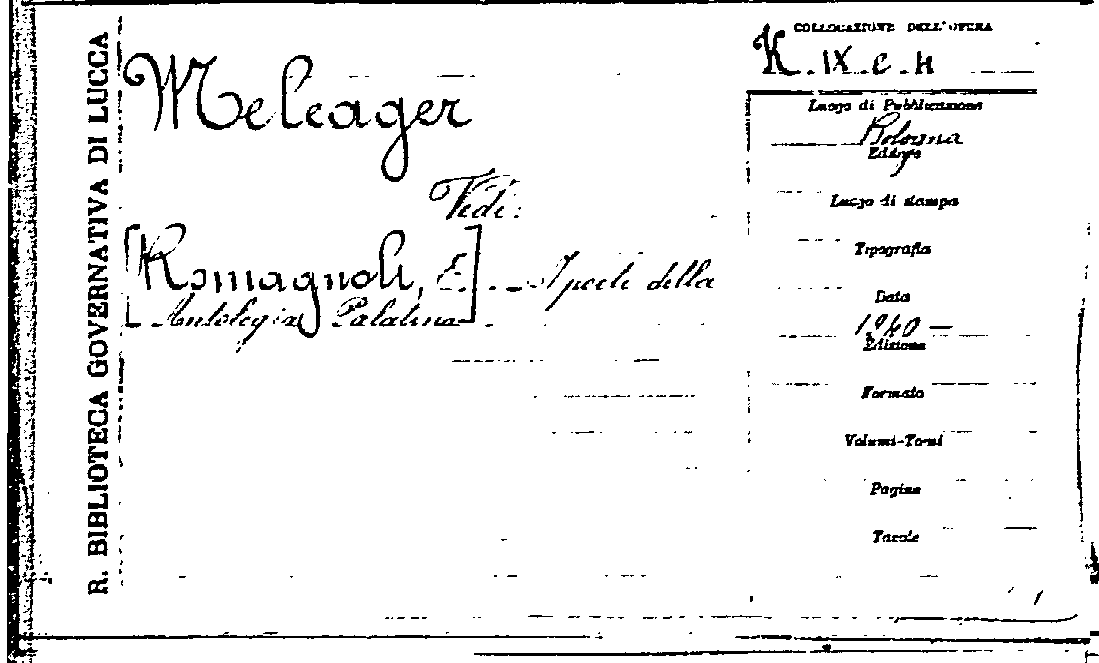 R. BIBLIOTECA GOVERNATIVA DI LUCCA
Meleager
Vedi:
[Romagnoli, E.] - I poeti della
Antologia Palatina
COLLOCAZIONE DELL'OPERA
K. IX. C. 4
Luogo di Pubblicazione
Bologna
Editore
Luogo di stampa
Tipografia
Data
1940 —
Edizione
Formato
Volumi-Tomi
Pagine
Tavole